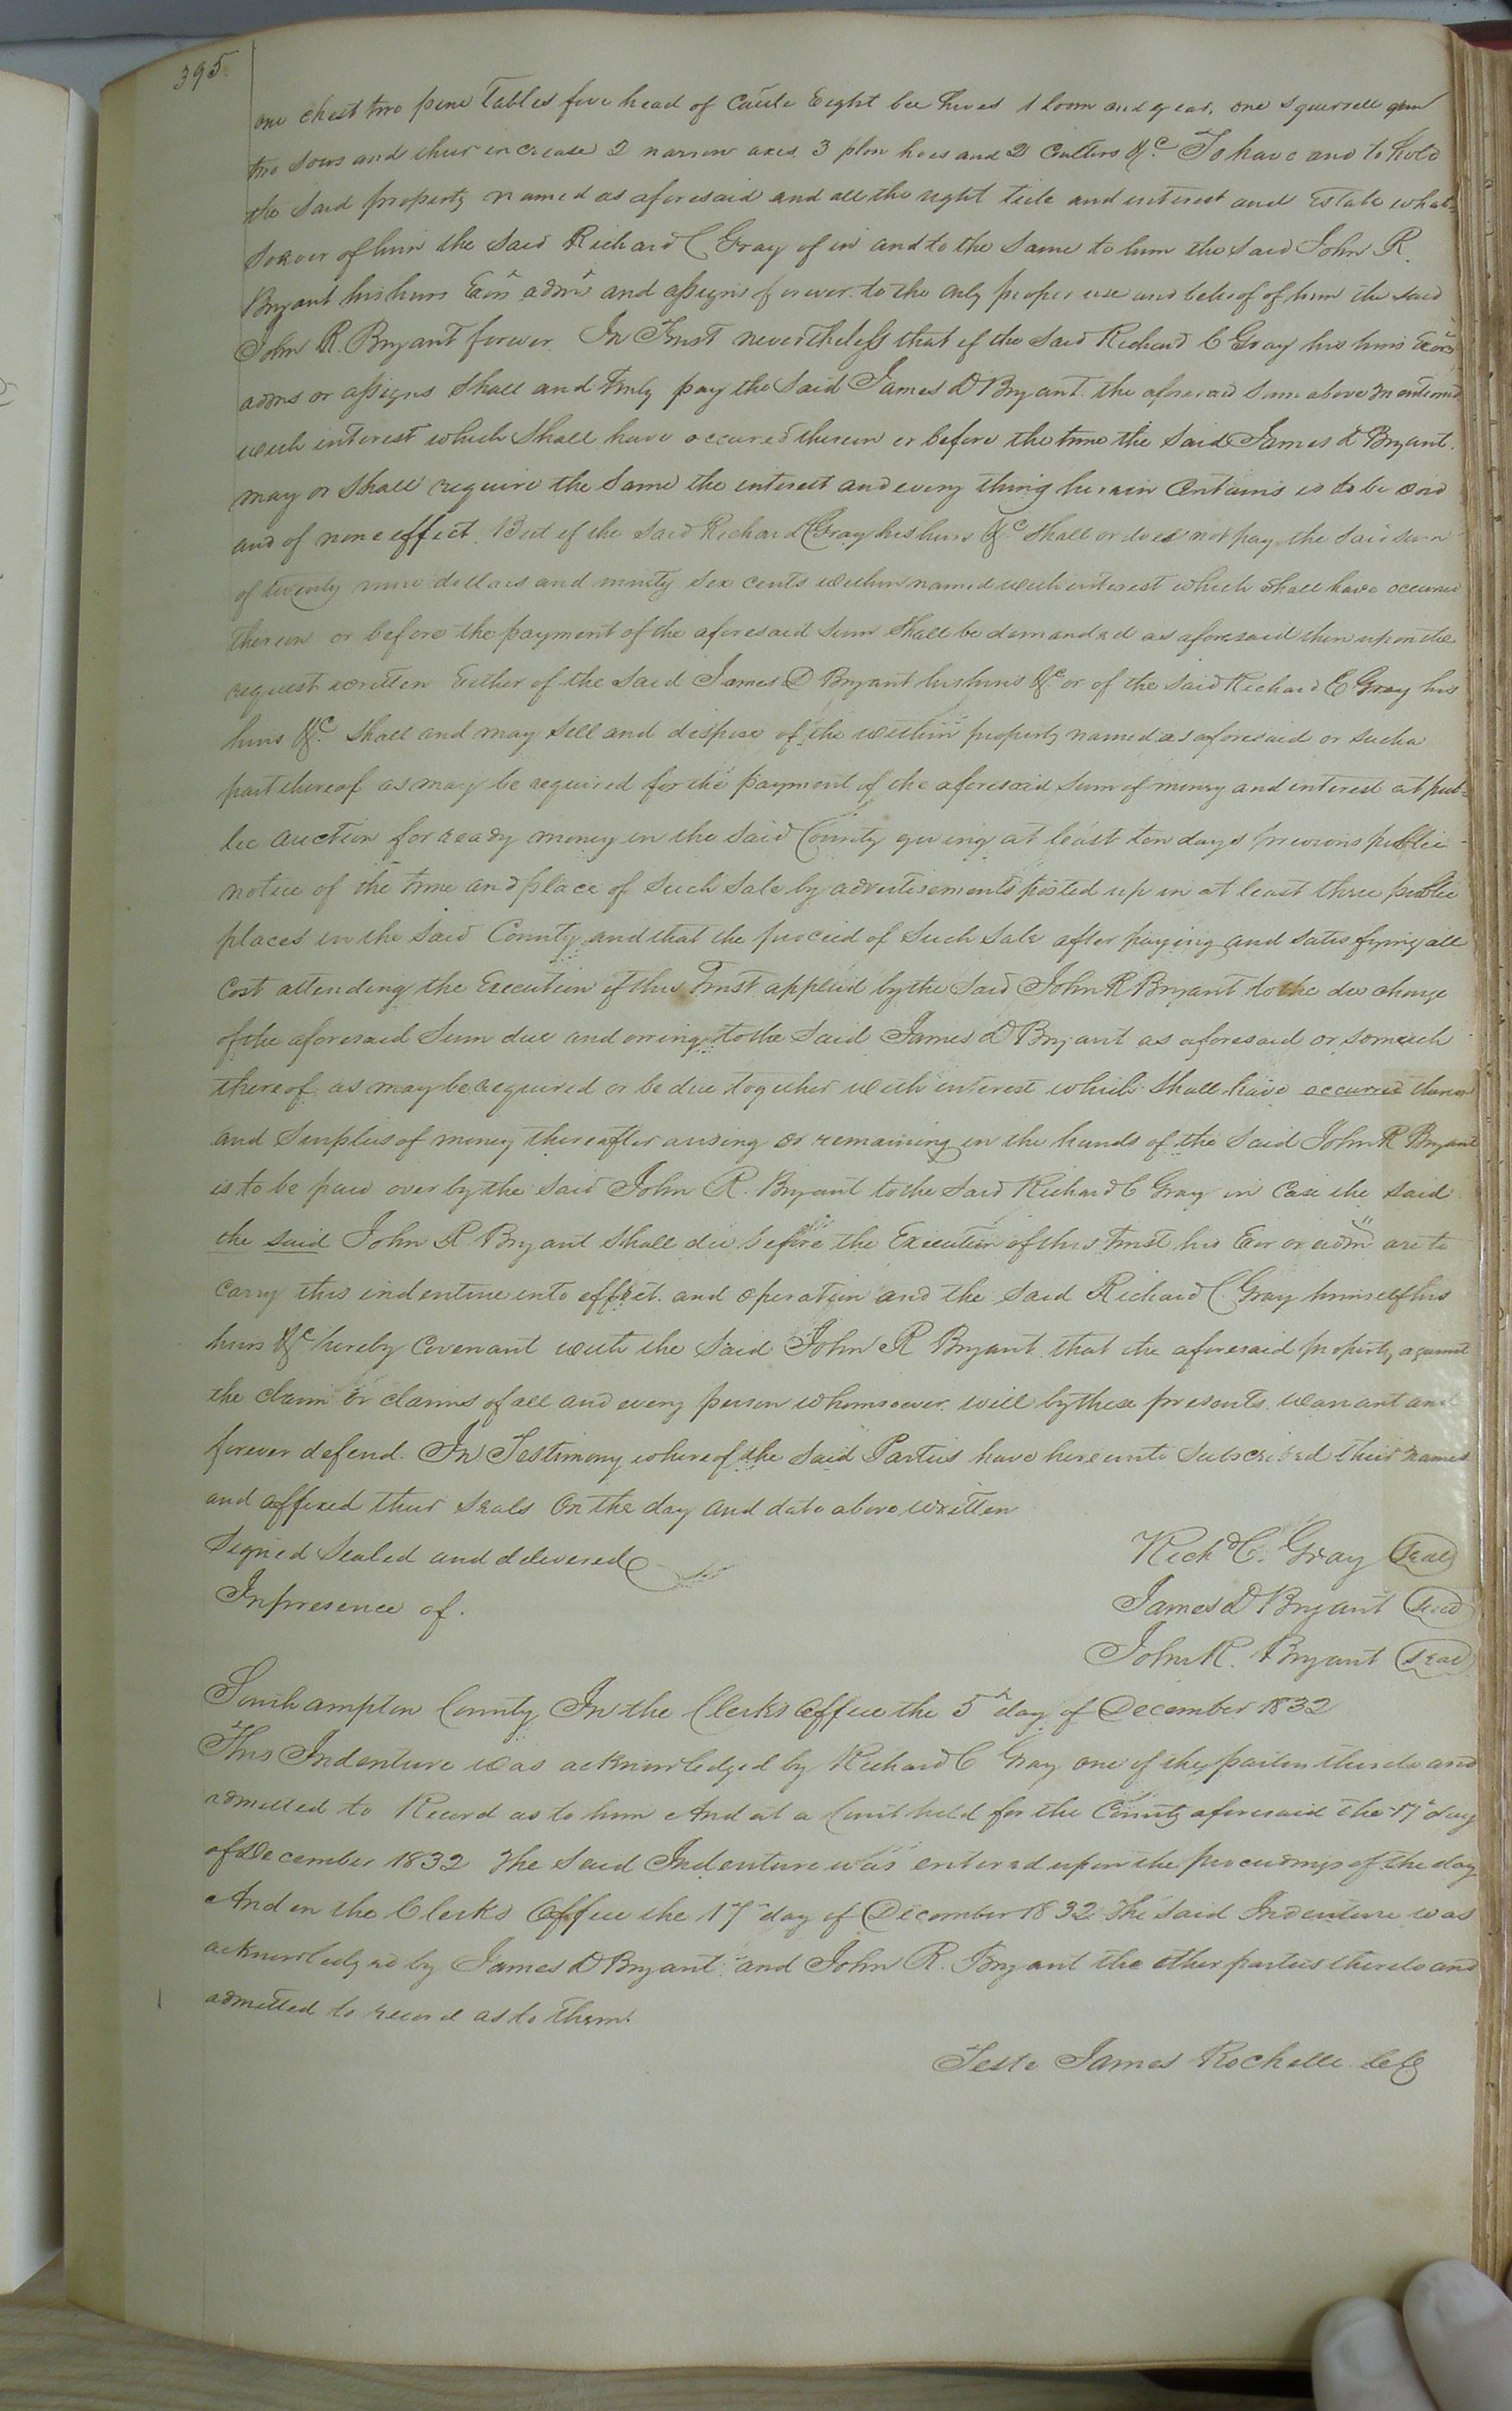 395
one chest two pine Tables five head of Cattle Eight bee hives 1 loom and gear, one Squirrell gun
two sows and their increase 2 narrow axes 3 plow hoes and 2 Coulters &c. To have and to hold
the said property named as aforesaid and all the right title and interest and Estate what-
soever of him the said Richard C Gray of in and to the same to him the said John R.
Bryant his heirs Exrs admrs and assigns forever to the only proper use and behoof of him the said
John R. Bryant forever. In Trust nevertheless that if the said Richard C Gray his heirs Exors
admrs or assigns shall and truly pay the said James D Bryant the aforesaid sum above mentioned
with interest which shall have occured thereon or before the time the said James D Bryant.
may or shall require the same the interest and every thing herein Contains is to be void
and of none effect. But if the said Richard C Gray his heirs &c. shall or does not pay the said sum
of twenty nine dollars and ninety six cents within named with interest which shall have occurred
thereon or before the payment of the aforesaid sum shall be demanded as aforesaid then upon the
request written Either of the said James D Bryant his heirs &c or of the said Richard C Gray his
heirs &c. shall and may sell and dispose of the within property named as aforesaid or such a
part thereof as may be required for the payment of the aforesaid sum of money and interest at pub-
lic auction for ready money in the said County giving at least ten days previous public
notice of the time and place of such sale by advertisements posted up in at least three public
places in the said County and that the proceed of such sale after paying and satisfying all
Cost attending the Execution of this Trust applied by the said John R Bryant to the discharge
of the aforesaid sum due and owing to the said James D Bryant as aforesaid or so much
thereof as may be required or be due together with interest which shall have occurred thereon
and Surplus of money thereafter arising or remaining in the hands of the said John R Bryant
is to be paid over by the said John R. Bryant to the said Richard C Gray in Case the said
the said John R Bryant shall die before the Execution of this trust his Exr or admr are to
carry this indenture into effect and operation and the said Richard C. Gray himself his
heirs &c hereby Covenant with the said John R Bryant that the aforesaid property against
the claim or claims of all and every person whomsoever will by these presents warrant and
forever defend. In Testimony whereof the said Parties have hereunto subscribed their names
and affixed their seals On the day and date above written
Signed Sealed and delivered
In presence of.
Richd C. Gray Seal
James D Bryant Seal
John R. Bryant Seal
Southampton County In the Clerks Office the 5th day of December 1832
This Indenture was acknowledged by Richard C Gray one of the parties thereto and
admitted to Record as to him And at a Court held for the County aforesaid the 17th day
of December 1832 The said Indenture was entered upon the proceedings of the day
And in the Clerks Office the 17th day of December 1832 The said Indenture was
acknowledged by James D Bryant and John R. Bryant the other parties thereto and
admitted to record as to them.
Teste James Rochelle